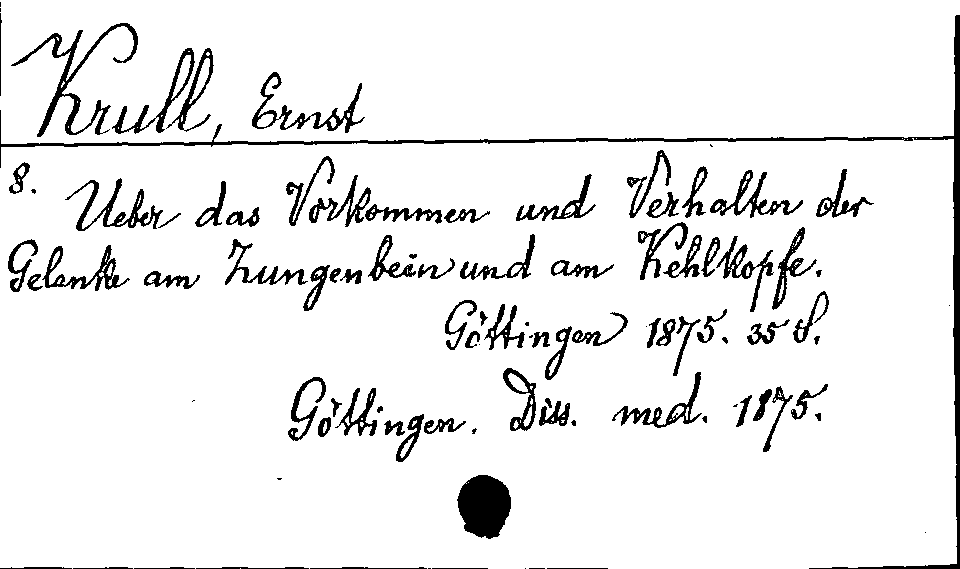 Krull, Ernst
8.
Ueber das Vorkommen und Verhalten der
Gelenke am Zungenbein und am Kehlkopfe.
Göttingen 1875. 35 S.
Göttingen. Diss. med. 1875.